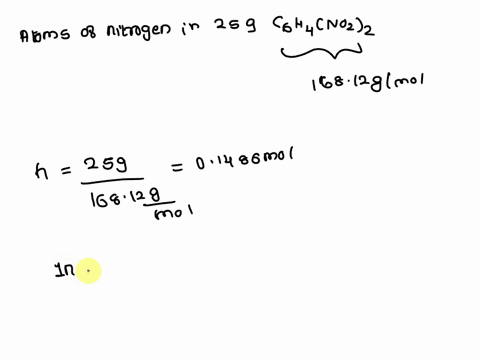 Atoms of nitrogen in 25g C6H4(NO2)2
168.12g/mol
n = 25g / 168.12 g/mol = 0.1486mol
In